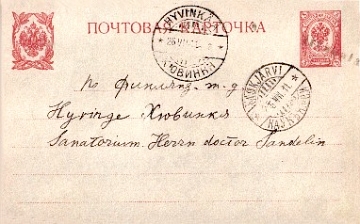 ПОЧТОВАЯ КАРТОЧКА
HYVINKÄ
ХЮВИНКЯ
по финлянд. ж. д.
Hyvinge Хювинкя
Sanatorium Herrn doctor Sandelin